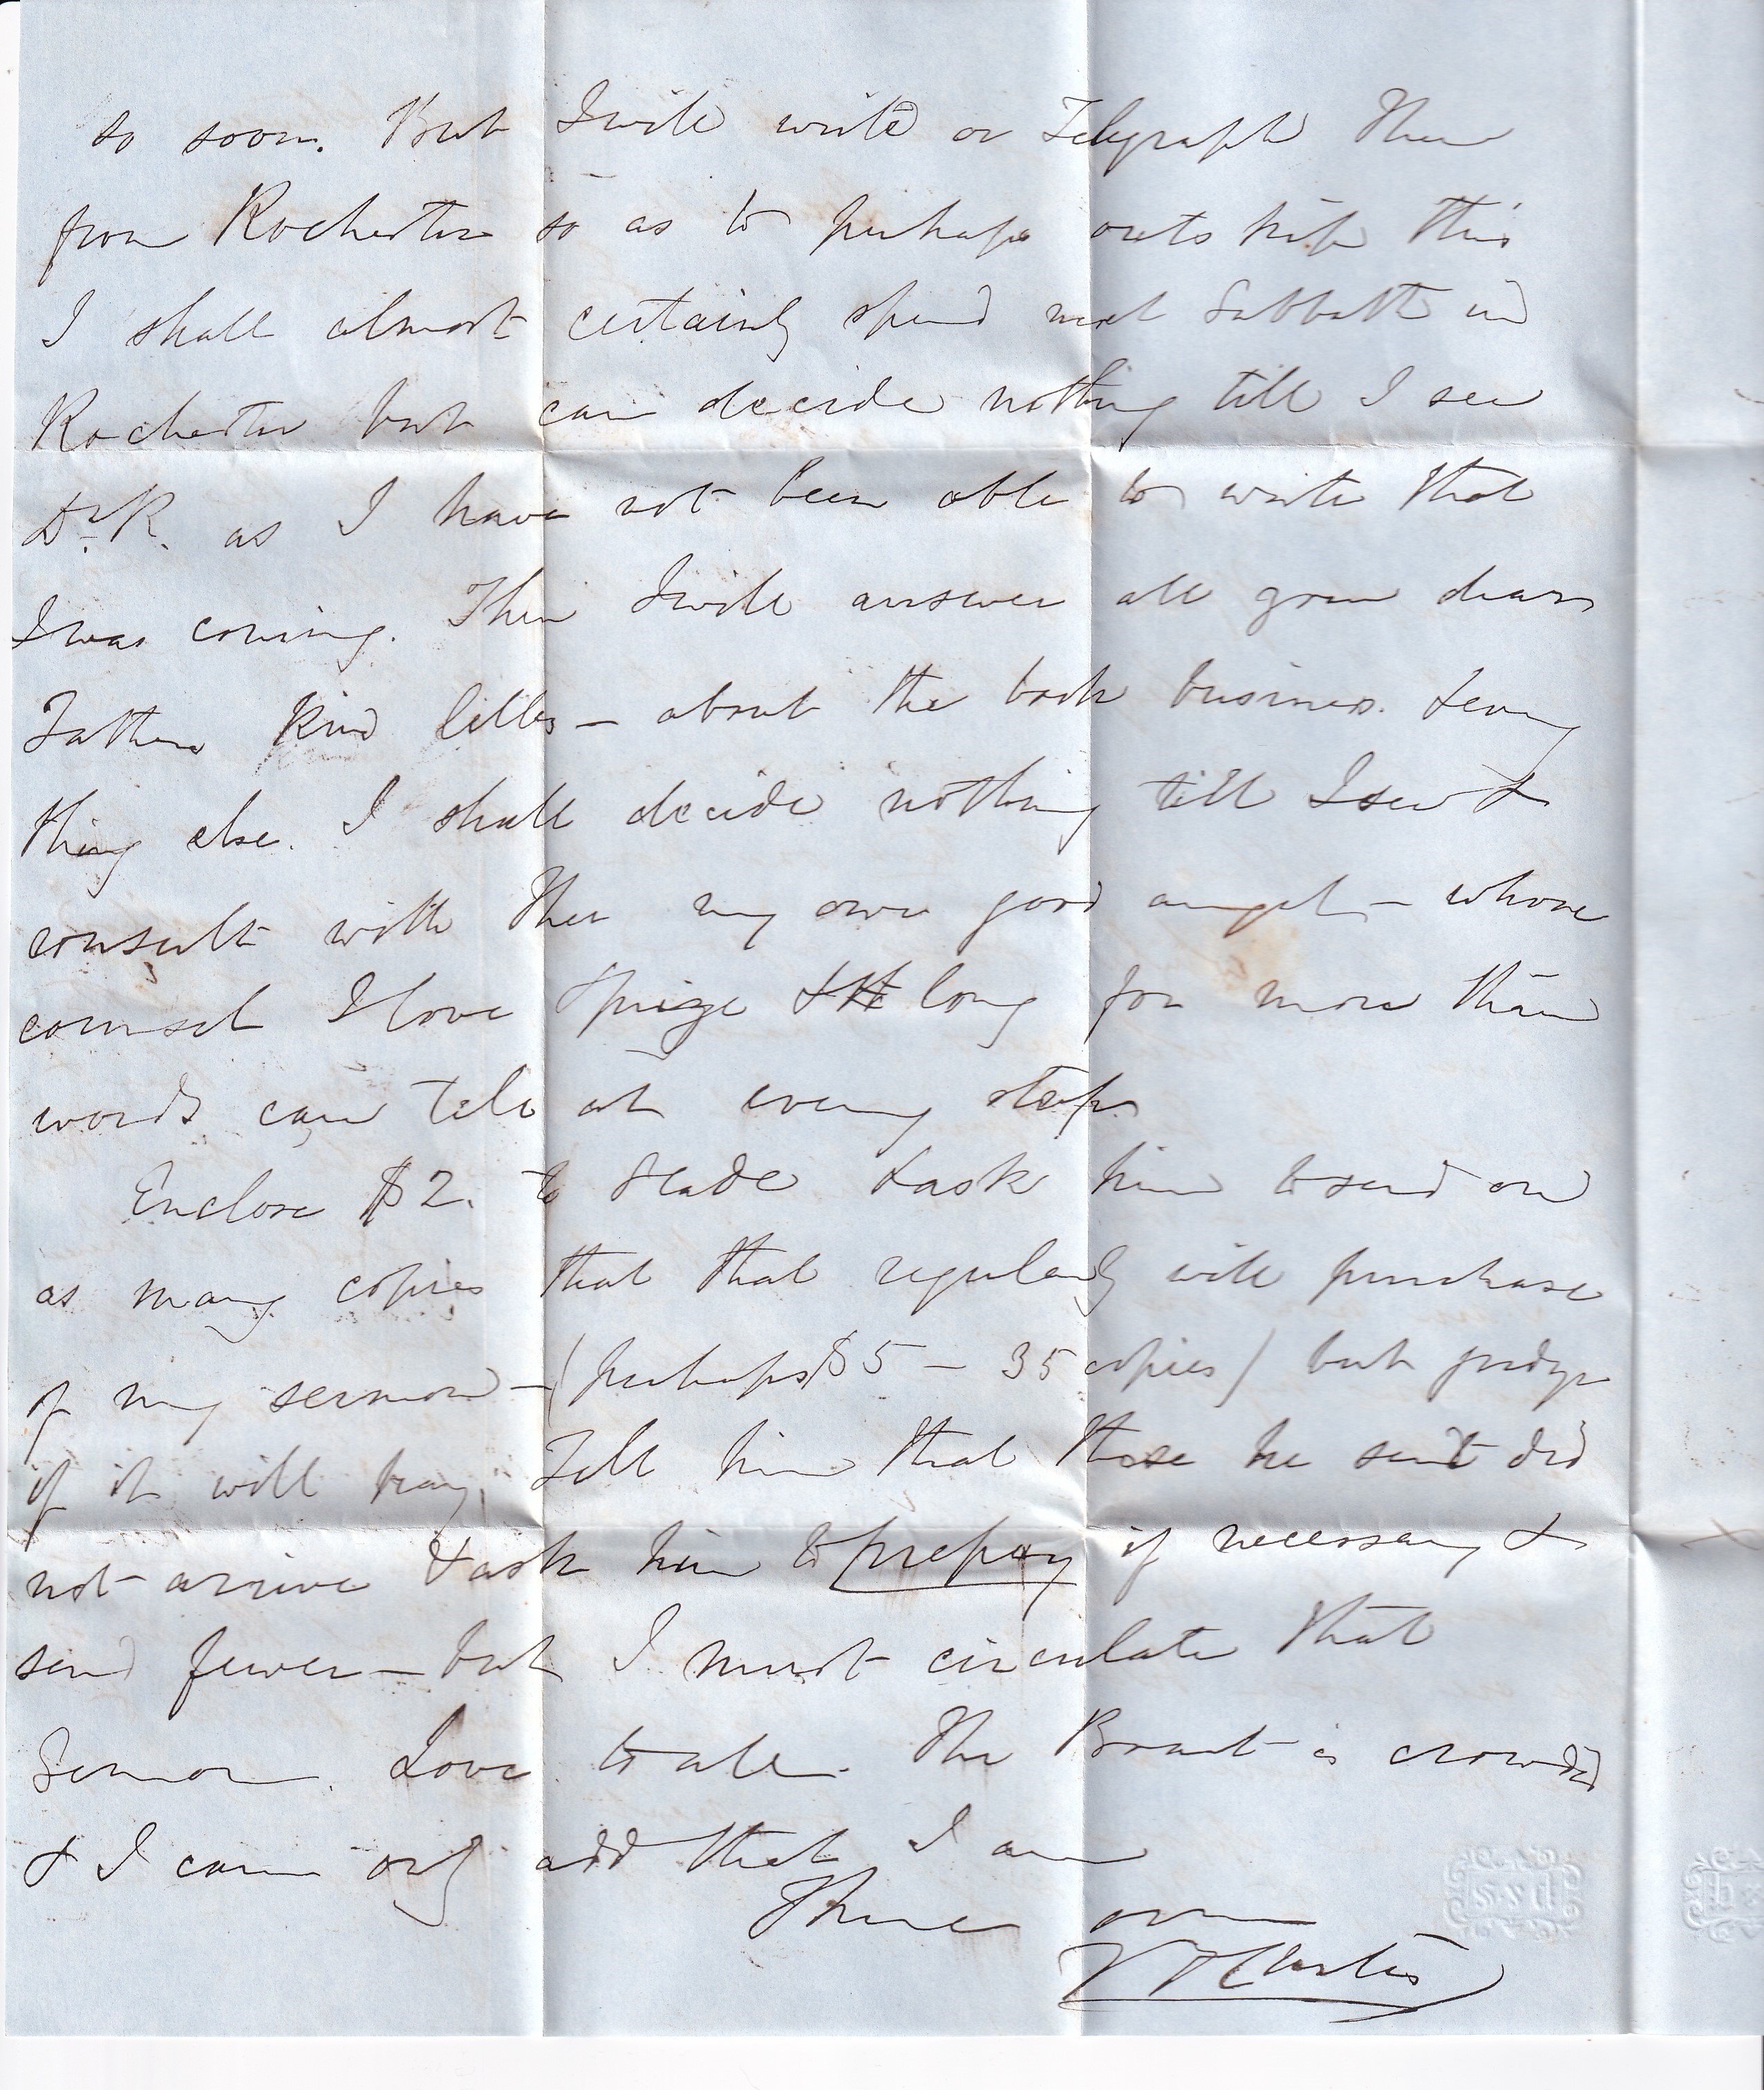 so soon. But I will write or Telegraph Thee
from Rochester so as to perhaps outstrip this
I shall almost certainly spend next Sabbath in
Rochester but can decide nothing till I see
Dr. R. as I have not been able to write that
I was coming. Then I will answer all your dear
Fathers kind letters – about the book business. & every
thing else. I shall decide nothing till I see &
consult with Thee my own good angel – whose
counsel I love & prize & long for more than
words can tell at every step.
Enclose $2. to Slade & ask him to send on
as many copies that that regularly will purchase
of my sermon – (perhaps $5 – 35 copies) but judge
if it will pay. Tell him that those he sent did
not arrive & ask him to prepay if necessary &
send fewer – but I must circulate that
Sermon. Love to all. The Boat is crowded
& I can only add that I am
Thine own